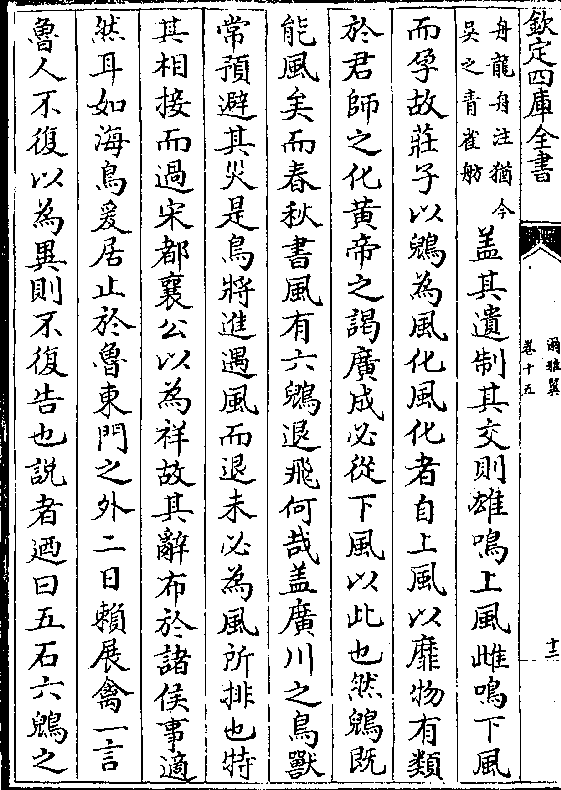 欽定四庫全書
爾雅翼
卷十五
舟龍舟注猶今
吳之青雀舫
盖其遺制其交則雄鳴上風雌鳴下風
而孕故莊子以鶂為風化風化者自上風以靡物有類
於君師之化黄帝之謁廣成必從下風以此也然鶂既
能風矣而春秋書風有六鶂退飛何哉盖廣川之鳥獸
常預避其災是鳥將進遇風而退未必為風所排也特
其相接而過宋都襄公以為祥故其辭布於諸侯事適
然耳如海鳥爰居止於魯東門之外二日賴展禽一言
魯人不復以為異則不復告也説者迺曰五石六鶂之